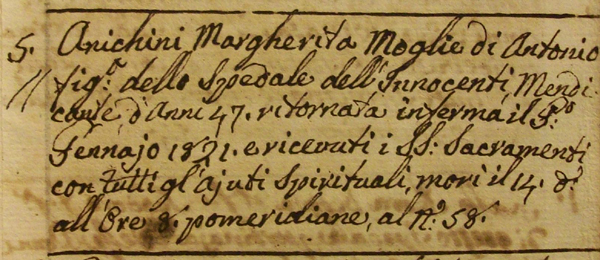 5. Anichini Margherita Moglie di Antonio
// fig.ª dello Spedale dell'Innocenti, Mendi-
cante, d'Anni 47. ritornata inferma il
Gennajo 1821. e ricevuti i SS: Sacramenti
con tutti gl'ajuti Spirituali, morì il 14. d.º
all'Ore 8. pomeridiane, al N.º 58.